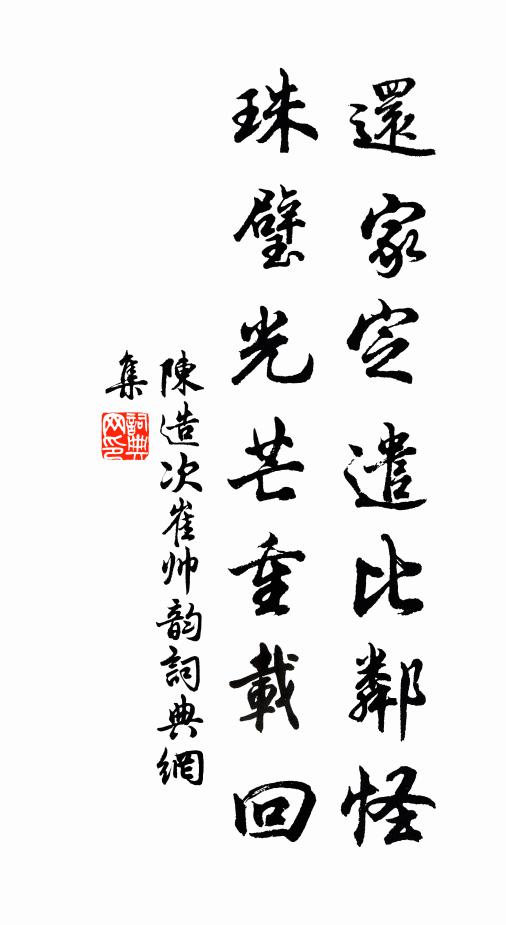 還家定遣比鄰怪
珠璧光芒重載回
陳造次崔帅韵詞典網
集
詞典
网印